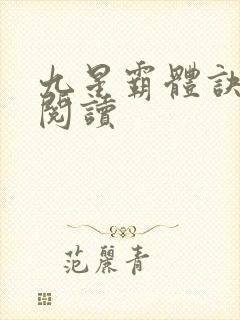 九星霸體訣
閱讀
范麗青